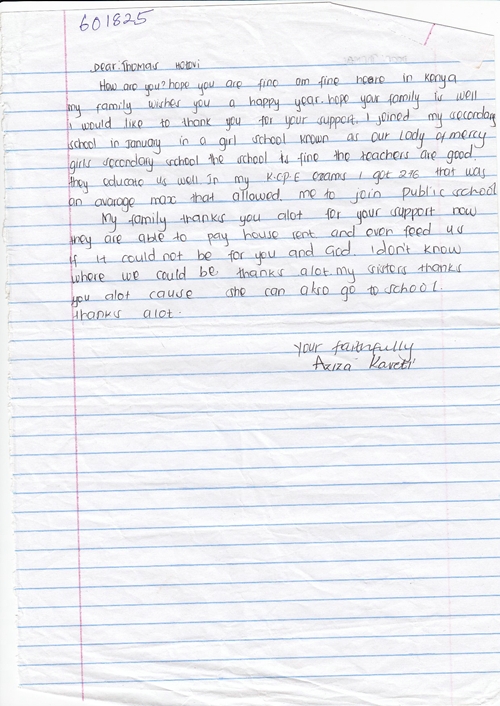 601825
Dear: Thomas
How are you? hope you are fine am fine heare in Kenya
my family wishes you a happy year. hope your family is well
I would like to thank you for your support. I joined my secondary
school in January in a girl school known as our lady of mercy
girls secondary school the school is fine the teachers are good.
they educate us well. In my K.C.P.E exams I got 276 that was
an avarage max that allowed. me to join public school
My family thanks you alot for your support now
they are able to pay house rent and even feed us
if it could not be for you and God. I don't know
where we could be. thanks alot. my sisters thanks
you alot cause she can also go to school.
thanks alot.
Your faithfully
Aziza